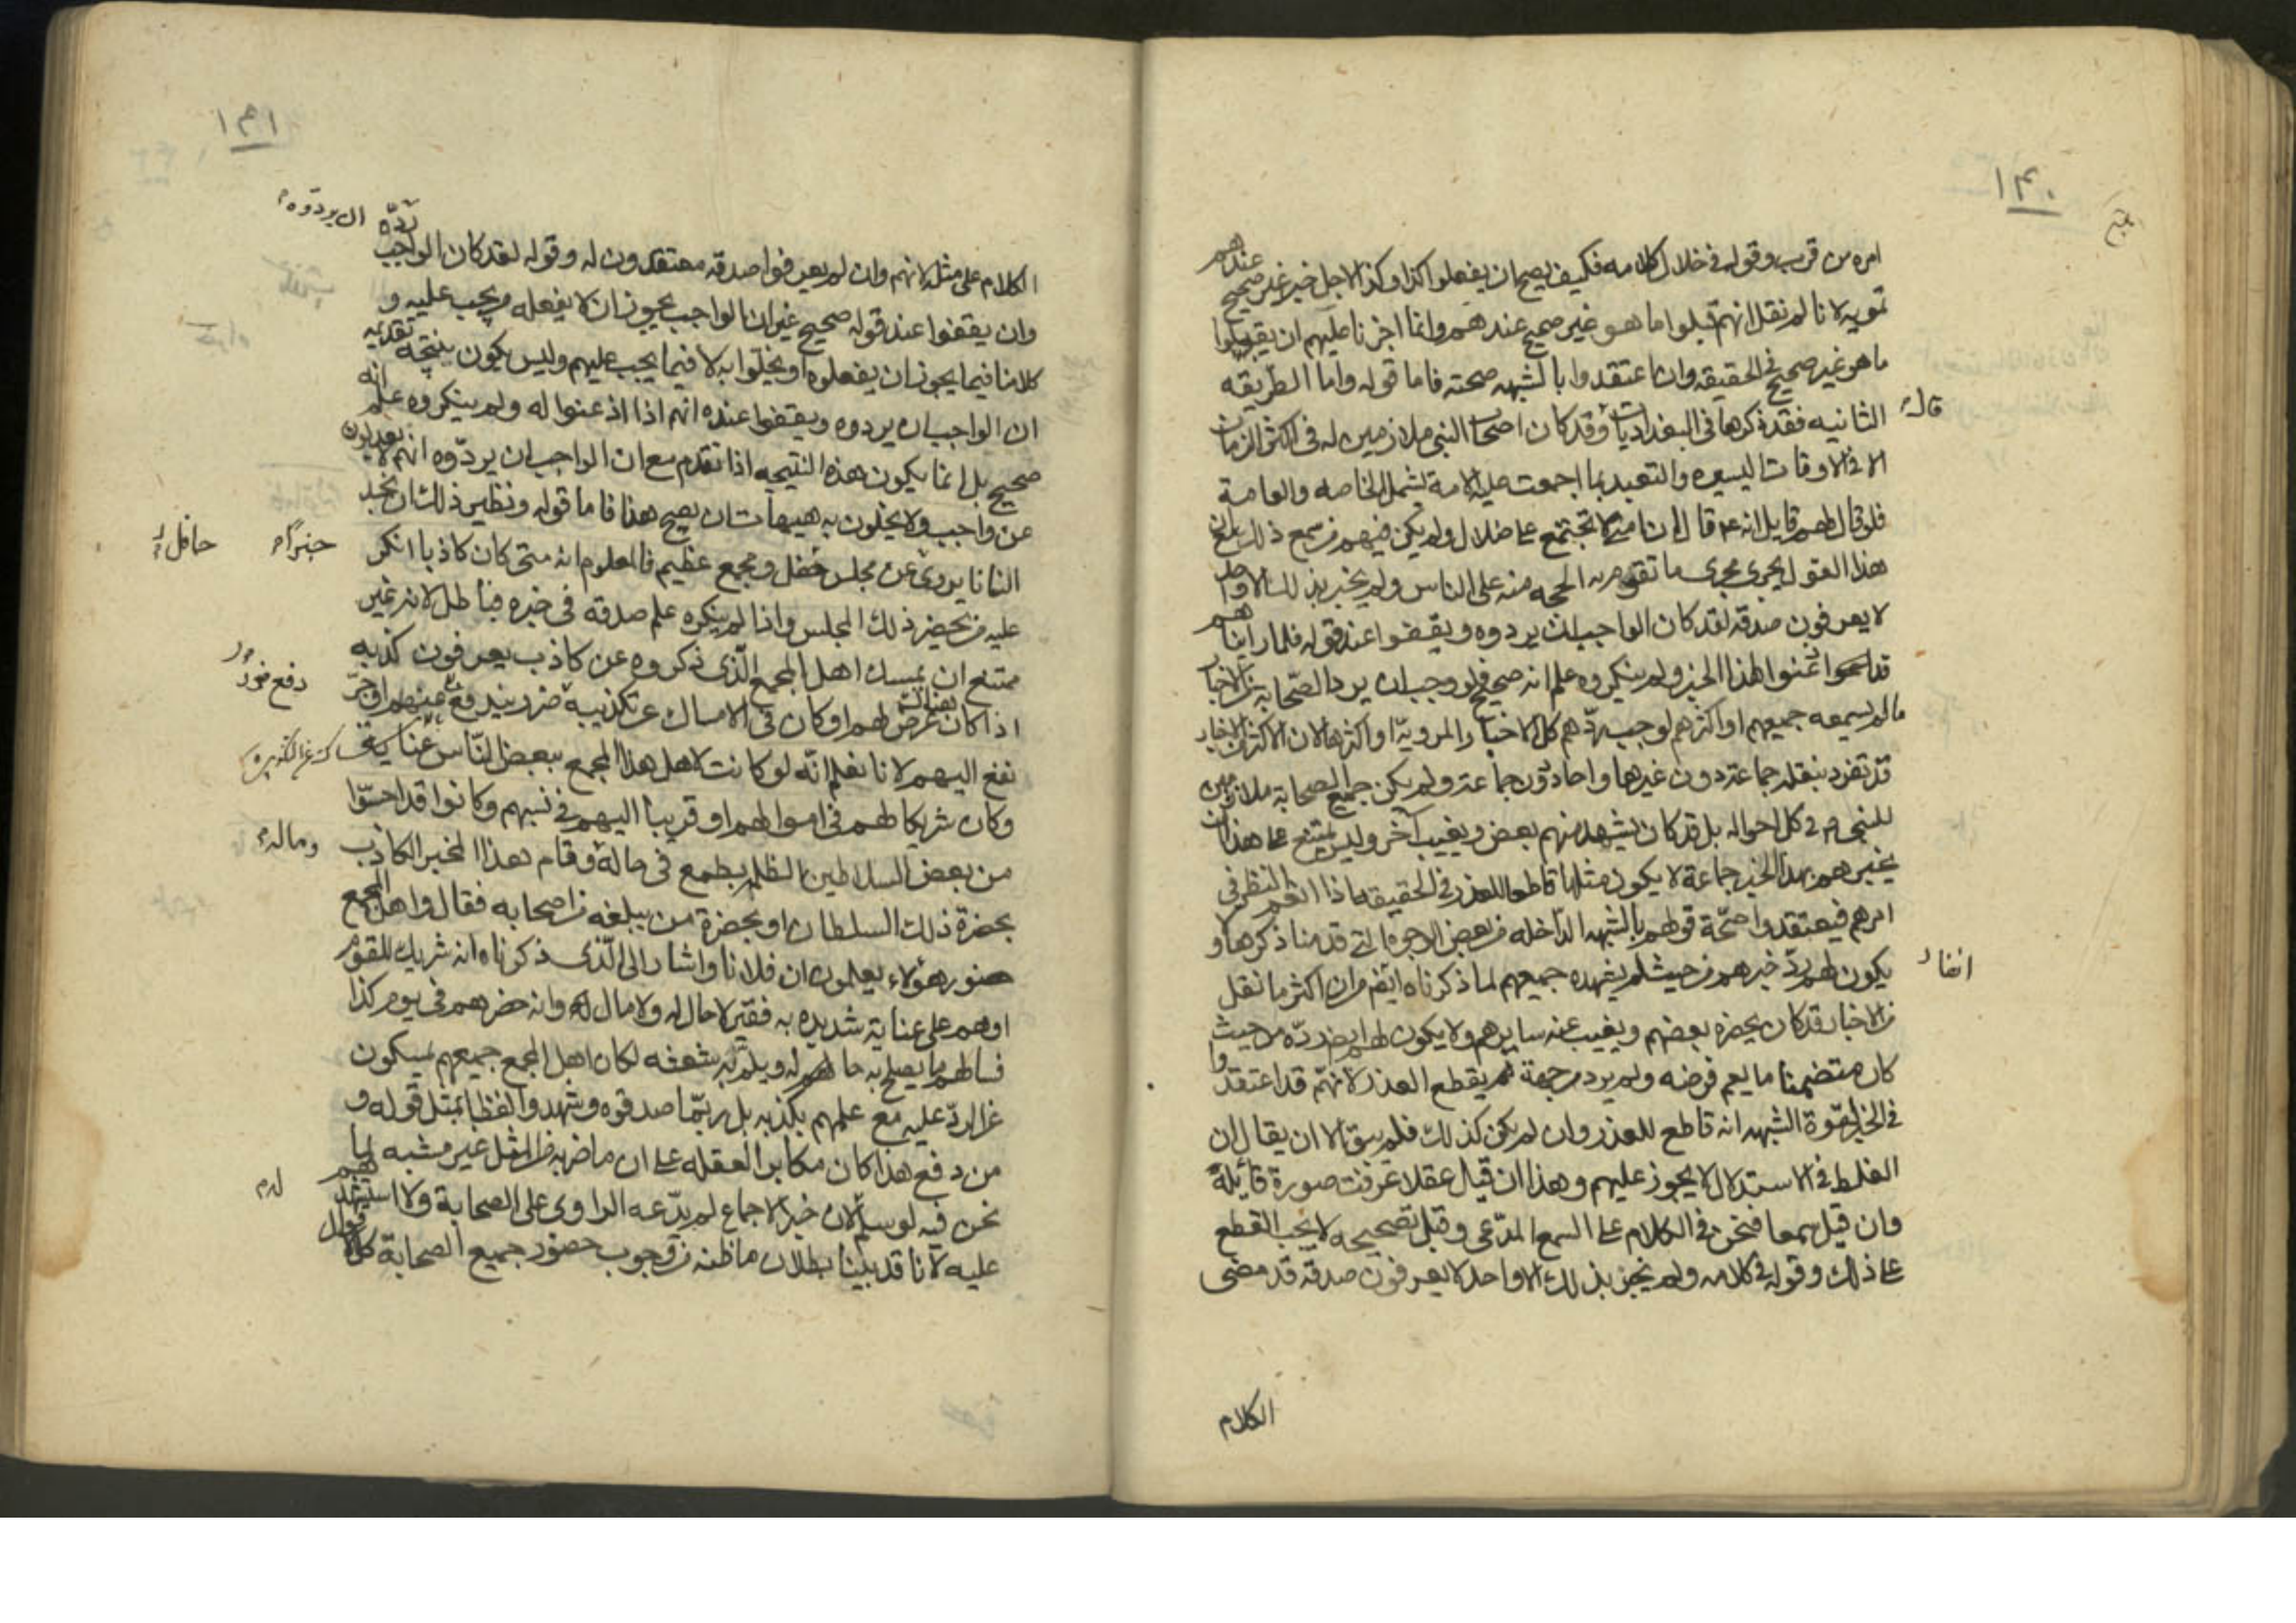 ١٣٠
امره من قرب وقوله فى خلال كلامه فكيف يصح ان يفعلوا كذا وكذا لاجل خبر غير صحيح عندهم
تمويه لانا لم نقل انهم قبلوا ما هو غير صحيح عندهم وانما اجزنا عليهم ان يقبلوا
ما هو غير صحيح فى الحقيقه وان اعتقدوا بالشبهه صحته فاما قوله واما الطريقه
الثانيه فقد ذكرها فى البغداديات وقد كان اصحاب النبى ملازمين له فى اكثر الزمان
قال
الا فى الاوقات اليسيره والتعبد بما اجمعت عليه الامة يشمل الخاصه والعامة
فلو قال لهم قايل انه ع قال ان امتى لا تجتمع على ضلال ولم يكن فيهم من سمع ذلك مع ان
هذا القول يجرى مجرى ما تقوم به الحجه منه على الناس ولم يخبر بذلك الا واحد
لا يعرفون صدقه لقد كان الواجب ان يردوه ويقفوا عند قوله فلما رايناهم
قد اذعنوا لهذا الخبر ولم ينكروه علم انه صحيح فلو وجب ان يرد الصحابة من الاخبار
ما لم يسمعه جميعهم او اكثرهم لوجب ردهم كل الاخبار المروية او اكثرها لان الاكثر من الاخبار
قد تفرد بنقله جماعة دون غيرها واحاد دون جماعة ولم يكن جميع الصحابة ملازمين
للنبى ص فى كل احواله بل قد كان يشهد منهم بعض ويغيب آخر وليس يمتنع على هذا ان
يخبرهم بهذا الخبر جماعة لا يكون مثلها قاطعا للعذر فى الحقيقه اذا انعم النظر فى
امرهم فيعتقدوا صحة قولهم بالشبهه الداخله من بعض الوجوه التى قدمنا ذكرها ولا
يكون لهم رد خبرهم من حيث لم يشهده جميعهم لما ذكرناه انفا من ان اكثر ما نقل
انفا
من الاخبار قد كان يحضره بعضهم ويغيب عنه سايرهم ولا يكون لهم ايضا رده من حيث
كان متضمنا ما يعم فرضه ولم يرد من جهة تقطع العذر لانهم قد اعتقدوا
فى الخبر لقوة الشبهه انه قاطع للعذر وان لم يكن كذلك فلم يبق الا ان يقال ان
الغلط فى الاستدلال لا يجوز عليهم وهذا ان قيل عقلا عرفت صورة قائله
وان قيل سمعا فنحن فى الكلام على السمع المدعى وقبل تصحيحه لا يجب القطع
على ذلك وقوله فى كلامه ولم يخبر بذلك الا واحد لا يعرفون صدقه قد مضى
الكلام
١٣١
الكلام على مثله لانهم وان لم يعرفوا صدقه معتقدون له وقوله لقد كان الواجب ردّه
ان يردوه
وان يقفوا عند قوله صحيح غير ان الواجب يجوز ان لا يفعله من يجب عليه و
كلامنا فيما يجوز ان يفعلوه او يخلوا به لا فيما يجب عليهم وليس يكون نتيجة تقديمه
ان الواجب ان يردوه ويقفوا عنده انهم اذا اذعنوا له ولم ينكروه علم انه
صحيح بل انما يكون هذه النتيجه اذا تقدم مع ان الواجب ان يردّوه انهم لا يعدلون
عن واجب ولا يخلون به هيهات ان يصح هذا فاما قوله ونظير ذلك ان نجد
انسانا يروى عن مجلس حفل ومجمع عظيم فالمعلوم انه متى كان كاذبا انكر
خبرا
حافل
عليه من يحضر ذلك المجلس واذا لم ينكره علم صدقه فى خبره فباطل لانه غير
ممتنع ان يمسك اهل المجمع الّذى ذكروه عن كاذب يعرفون كذبه
اذا كان هناك غرض لهم او كان فى الامساك عن تكذيبه ضرر يندفع عنهم او جرّ
دفع ضرر
نفع اليهم لانا نعلم انّه لو كانت لاهل هذا المجمع ببعض النّاس عناية
وكان شريكا لهم فى اموالهم او قريبا اليهم فى نسبهم وكانوا قد احسّوا
من بعض السلاطين الظلمه بطمع فى حاله وقام هذا المخبر الكاذب
وماله
بحضرة ذلك السلطان او بحضرة من يبلغه من اصحابه فقال واهل المجمع
حضور هؤلاء يعلمون ان فلانا واشار الى الّذى ذكرناه انه شريك للقوم
او هم على عناية شديده به فقير لا حال له ولا مال له وانه حضرهم فى يوم كذا
فسالهم ما يصلح به حالهم له ويلم به شعثه لكان اهل المجمع جميعهم يمسكون
عن الردّ عليه مع علمهم بكذبه بل ربّما صدقوه وشهدوا لفظا بمثل قوله و
من دفع هذا كان مكابرا لعقله على ان ما ضربه من المثل غير مشبه لما
نحن فيه لو سلم لان خبر الاجماع لم يدّعه الراوى على الصحابة ولا استشهدهم
لم
عليه لانا قد بيّنا بطلان ما ظنه من وجوب حضور جميع الصحابة كل